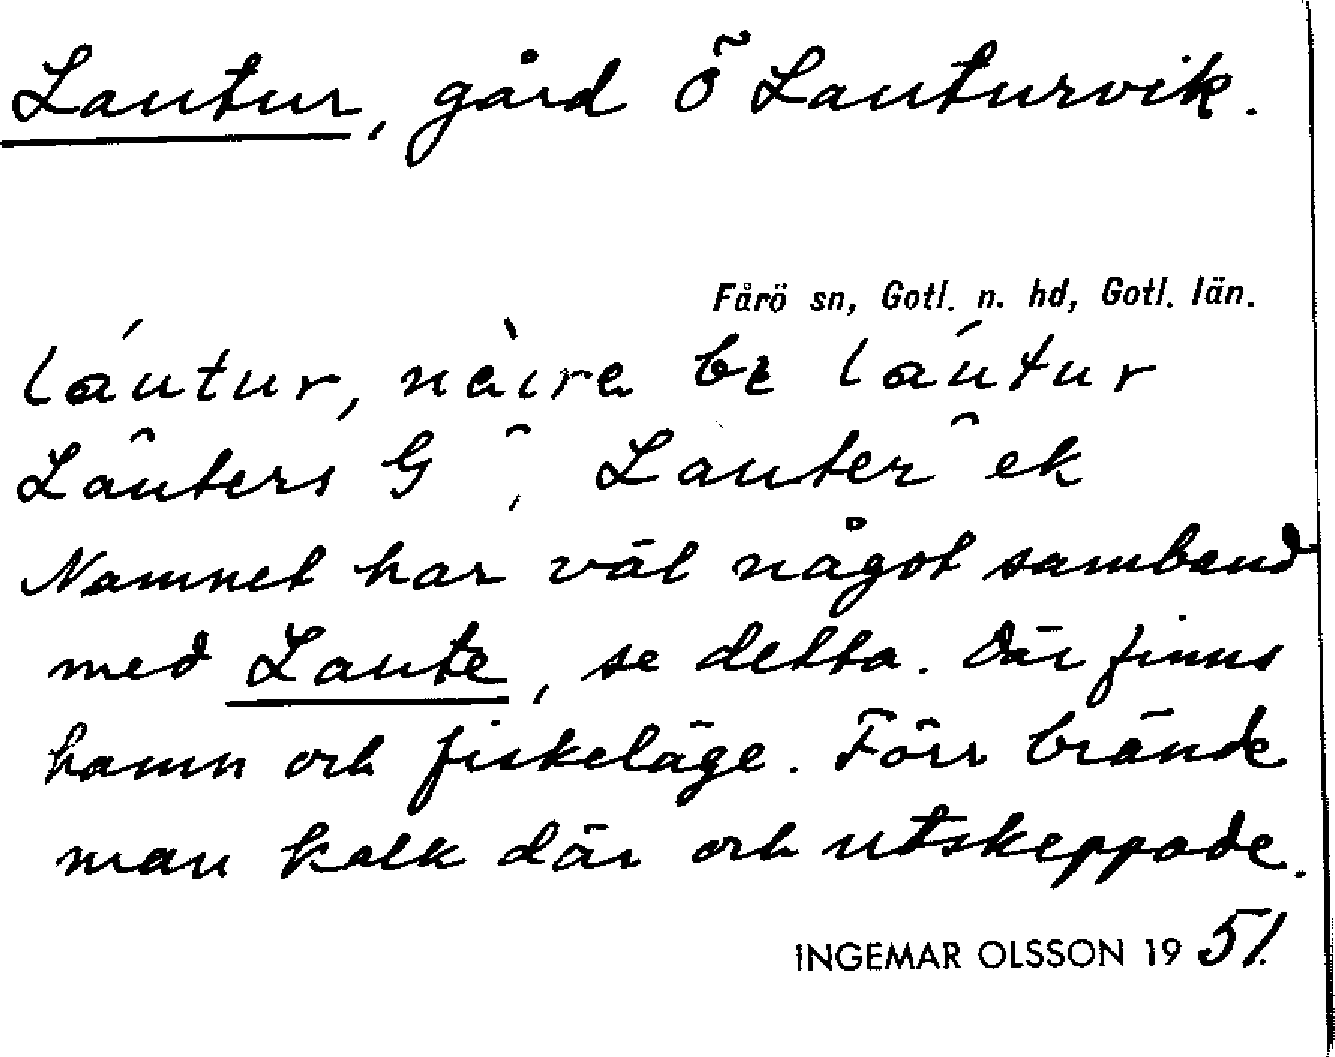 Lautur, gård Ö Lauturvik.
Fårö sn, Gotl. n. hd, Gotl. län.
láutur, nàira bɛ láutur
Lauters G, Lauter ek
Namnet har väl något samband
med Laute, se detta. Där finns
hamn och fiskeläge. Förr brände
man kalk där och utskeppade.
INGEMAR OLSSON 1951.